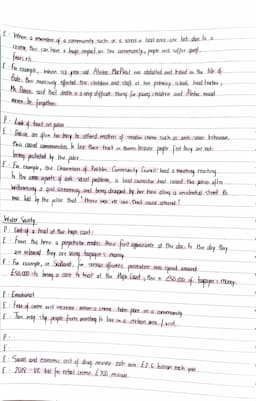 E: When a member of a community such as a is lost due to a
crime, this can have a huge impact on the community, people will suffer grief,
E: For example, when six year old Alesha MacPhail was abducted and killed in the Isle of
Bute, this massively affected the children and staff at her primary school, head teacher,
Mr. said that death is a very difficult thing for young children and Alesha would
never be forgotten.
P: Lack of trust in police
E: Police are often too busy to attend matters of smaller crime such as anti-social behaviour,
this causes communities to lose their trust in them because people feel they are not
being protected by the police.
E: For example, the Chairman of Community Council had a meeting relating
to the anti-social problem, a local councillor had called the police after
witnessing a girl screaming and being dragged by her hair along a residential street. He
was told by the police that "there was no one that could attend".
Wider Society
P: Cost of a trial at the high court:
E: From the time a perpetrator makes their first appearance at the to the day they
are released they are using taxpayer's money.
E: For example, in Scotland, for serious offences, prosecution was spend around
£50,000 to bring a case to trial at the High Court, this is £50,000 of taxpayer's money.
P: Emotional
E: Fear of crime will increase when a crime takes place in a community.
E: This may stop people from wanting to live in a certain area /
P:
E:
E: Social and economic cost of drug misuse costs over £3.5 billion each year.
E: 2018 - UK lost to retail crime £700 million.